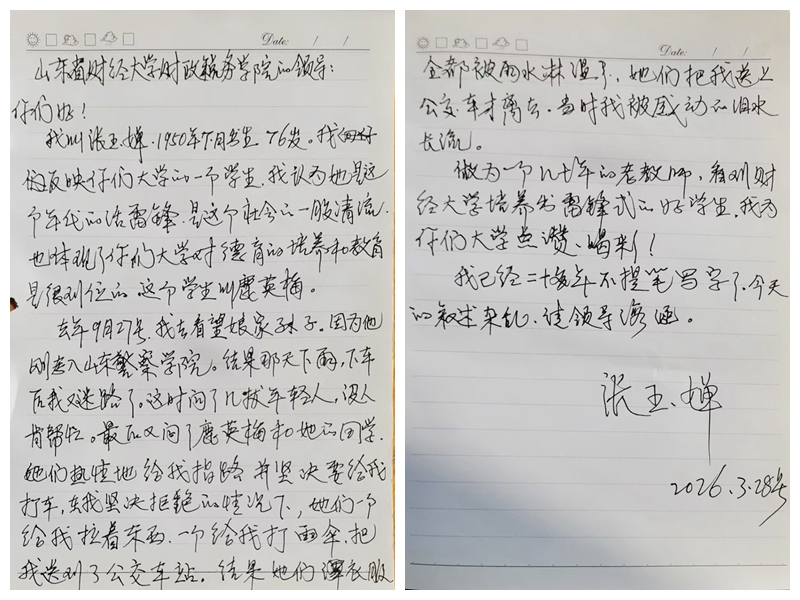 Date: / /
山东省财经大学财政税务学院的领导:
你们好!
我叫张玉婵. 1950年7月出生 76岁。我
反映你们大学的一个学生. 我认为她是这
个年代的活雷锋. 是这个社会的一股清流.
也体现了你们大学对德育的培养和教育
是很到位的. 这个学生叫鹿英梅。
去年9月27号. 我去看望娘家孙子。因为他
刚考入山东警察学院。结果那天下雨, 下车
后我又迷路了。这时问了几拨年轻人, 没人
肯帮忙。最后又问了鹿英梅和她的同学.
她们热情地给我指路并坚决要给我
打车, 在我坚决拒绝的情况下, 她们一个
给我拉着东西. 一个给我打雨伞. 把
我送到了公交车站. 结果她们浑衣服
Date: / /
全都被雨水淋湿了. 她们把我送上
公交车才离去. 当时我被感动的泪水
长流。
做为一个几十年的老教师, 看到财
经大学培养出雷锋式的好学生. 我为
你们大学点赞、喝彩!
我已经二十多年不提笔写字了. 今天
的叙述杂乱. 请领导海涵。
张玉婵
2026.3.28号